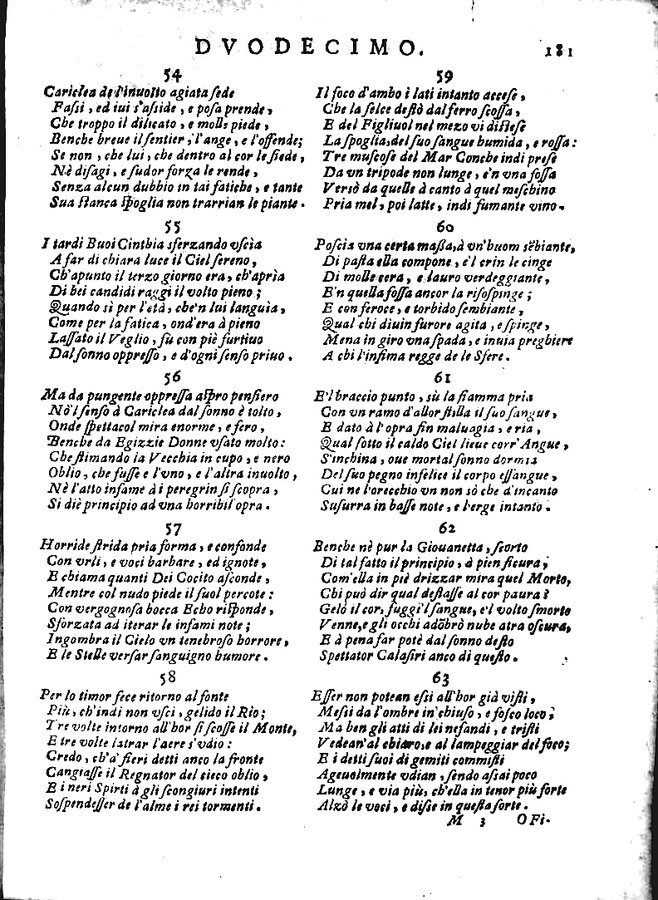 DVODECIMO. 181
54
Cariclea de l'inuolto agiata sede
Fassi, ed iui s'asside, e posa prende,
Che troppo il dilicato, e molle piede,
Benche breue il sentier, l'ange, e l'offende;
Se non, che lui, che dentro al cor le siede,
Nè disagi, e sudor forza le rende,
Senza alcun dubbio in tai fatiche, e tante
Sua stanca spoglia non trarrian le piante.
55
I tardi Buoi Cinthia sferzando vscìa
A far di chiara luce il Ciel sereno,
Ch'apunto il terzo giorno era, ch'aprìa
Di bei candidi raggi il volto pieno;
Quando sì per l'età, che'n lui languìa,
Come per la fatica, ond'era à pieno
Lassato il Veglio, fù con piè furtiuo
Dal sonno oppresso, e d'ogni senso priuo.
56
Ma da pungente oppressa aspro pensiero
Nō'l senso à Cariclea dal sonno è tolto,
Onde spettacol mira enorme, e fero,
Benche da Egizzie Donne vsato molto:
Che stimando la Vecchia in cupo, e nero
Oblio, che fusse e l'vno, e l'altra inuolto,
Nè l'atto infame à i peregrin si scopra,
Si diè principio ad vna horribil'opra.
57
Horride strida pria forma, e confonde
Con vrli, e voci barbare, ed ignote,
E chiama quanti Dei Cocito asconde,
Mentre col nudo piede il suol percote:
Con vergognosa bocca Echo risponde,
Sforzata ad iterar le infami note;
Ingombra il Cielo vn tenebroso horrore,
E le Stelle versar sanguigno humore.
58
Per lo timor fece ritorno al fonte
Più, ch'indi non vscì, gelido il Rio;
Tre volte intorno all'hor si scosse il Monte,
E tre volte latrar l'aere s'vdio:
Credo, ch'a' fieri detti anco la fronte
Cangiasse il Regnator del cieco oblio,
E i neri Spirti à gli scongiuri intenti
Sospendesser de l'alme i rei tormenti.
59
Il foco d'ambo i lati intanto accese,
Che la selce destò dal ferro scossa,
E del Figliuol nel mezo vi distese
La spoglia, del suo sangue humida, e rossa:
Tre muscose del Mar Conche indi prese
Da vn tripode non lunge, e'n vna fossa
Versò da quelle à canto à quel meschino
Pria mel, poi latte, indi fumante vino.
60
Poscia vna certa massa, à vn'huom sēbiante,
Di pasta ella compone, e'l crin le cinge
Di molle cera, e lauro verdeggiante,
E'n quella fossa ancor la risospinge;
E con feroce, e torbido sembiante,
Qual chi diuin furore agita, e spinge,
Mena in giro vna spada, e inuia preghiere
A chi l'infima regge de le Sfere.
61
E'l braccio punto, sù la fiamma pria
Con vn ramo d'allor stilla il suo sangue,
E dato à l'opra fin maluagia, e ria,
Qual sotto il caldo Ciel lieue corr'Angue,
S'inchina, oue mortal sonno dormia
Del suo pegno infelice il corpo essangue,
Cui ne l'orecchio vn non sò che d'incanto
Susurra in basse note, e l'erge intanto.
62
Benche nè pur la Giouanetta, scorto
Di tal fatto il principio, à pien sicura;
Com'ella in piè drizzar mira quel Morto,
Chi può dir qual destasse al cor paura?
Gelò il cor, fuggì'l sangue, e'l volto smorto
Venne, e gli occhi adōbrò nube atra oscura,
E à pena far potè dal sonno desto
Spettator Calasiri anco di questo.
63
Esser non potean essi all'hor già visti,
Messi da l'ombre in chiuso, e fosco loco;
Ma ben gli atti di lei nefandi, e tristi
Vedean'al chiaro, e al lampeggiar del foco;
E i detti suoi di gemiti commisti
Ageuolmente vdian, sendo assai poco
Lunge, e via più, ch'ella in tenor più forte
Alzò le voci, e disse in questa sorte.
M 3 OFi-